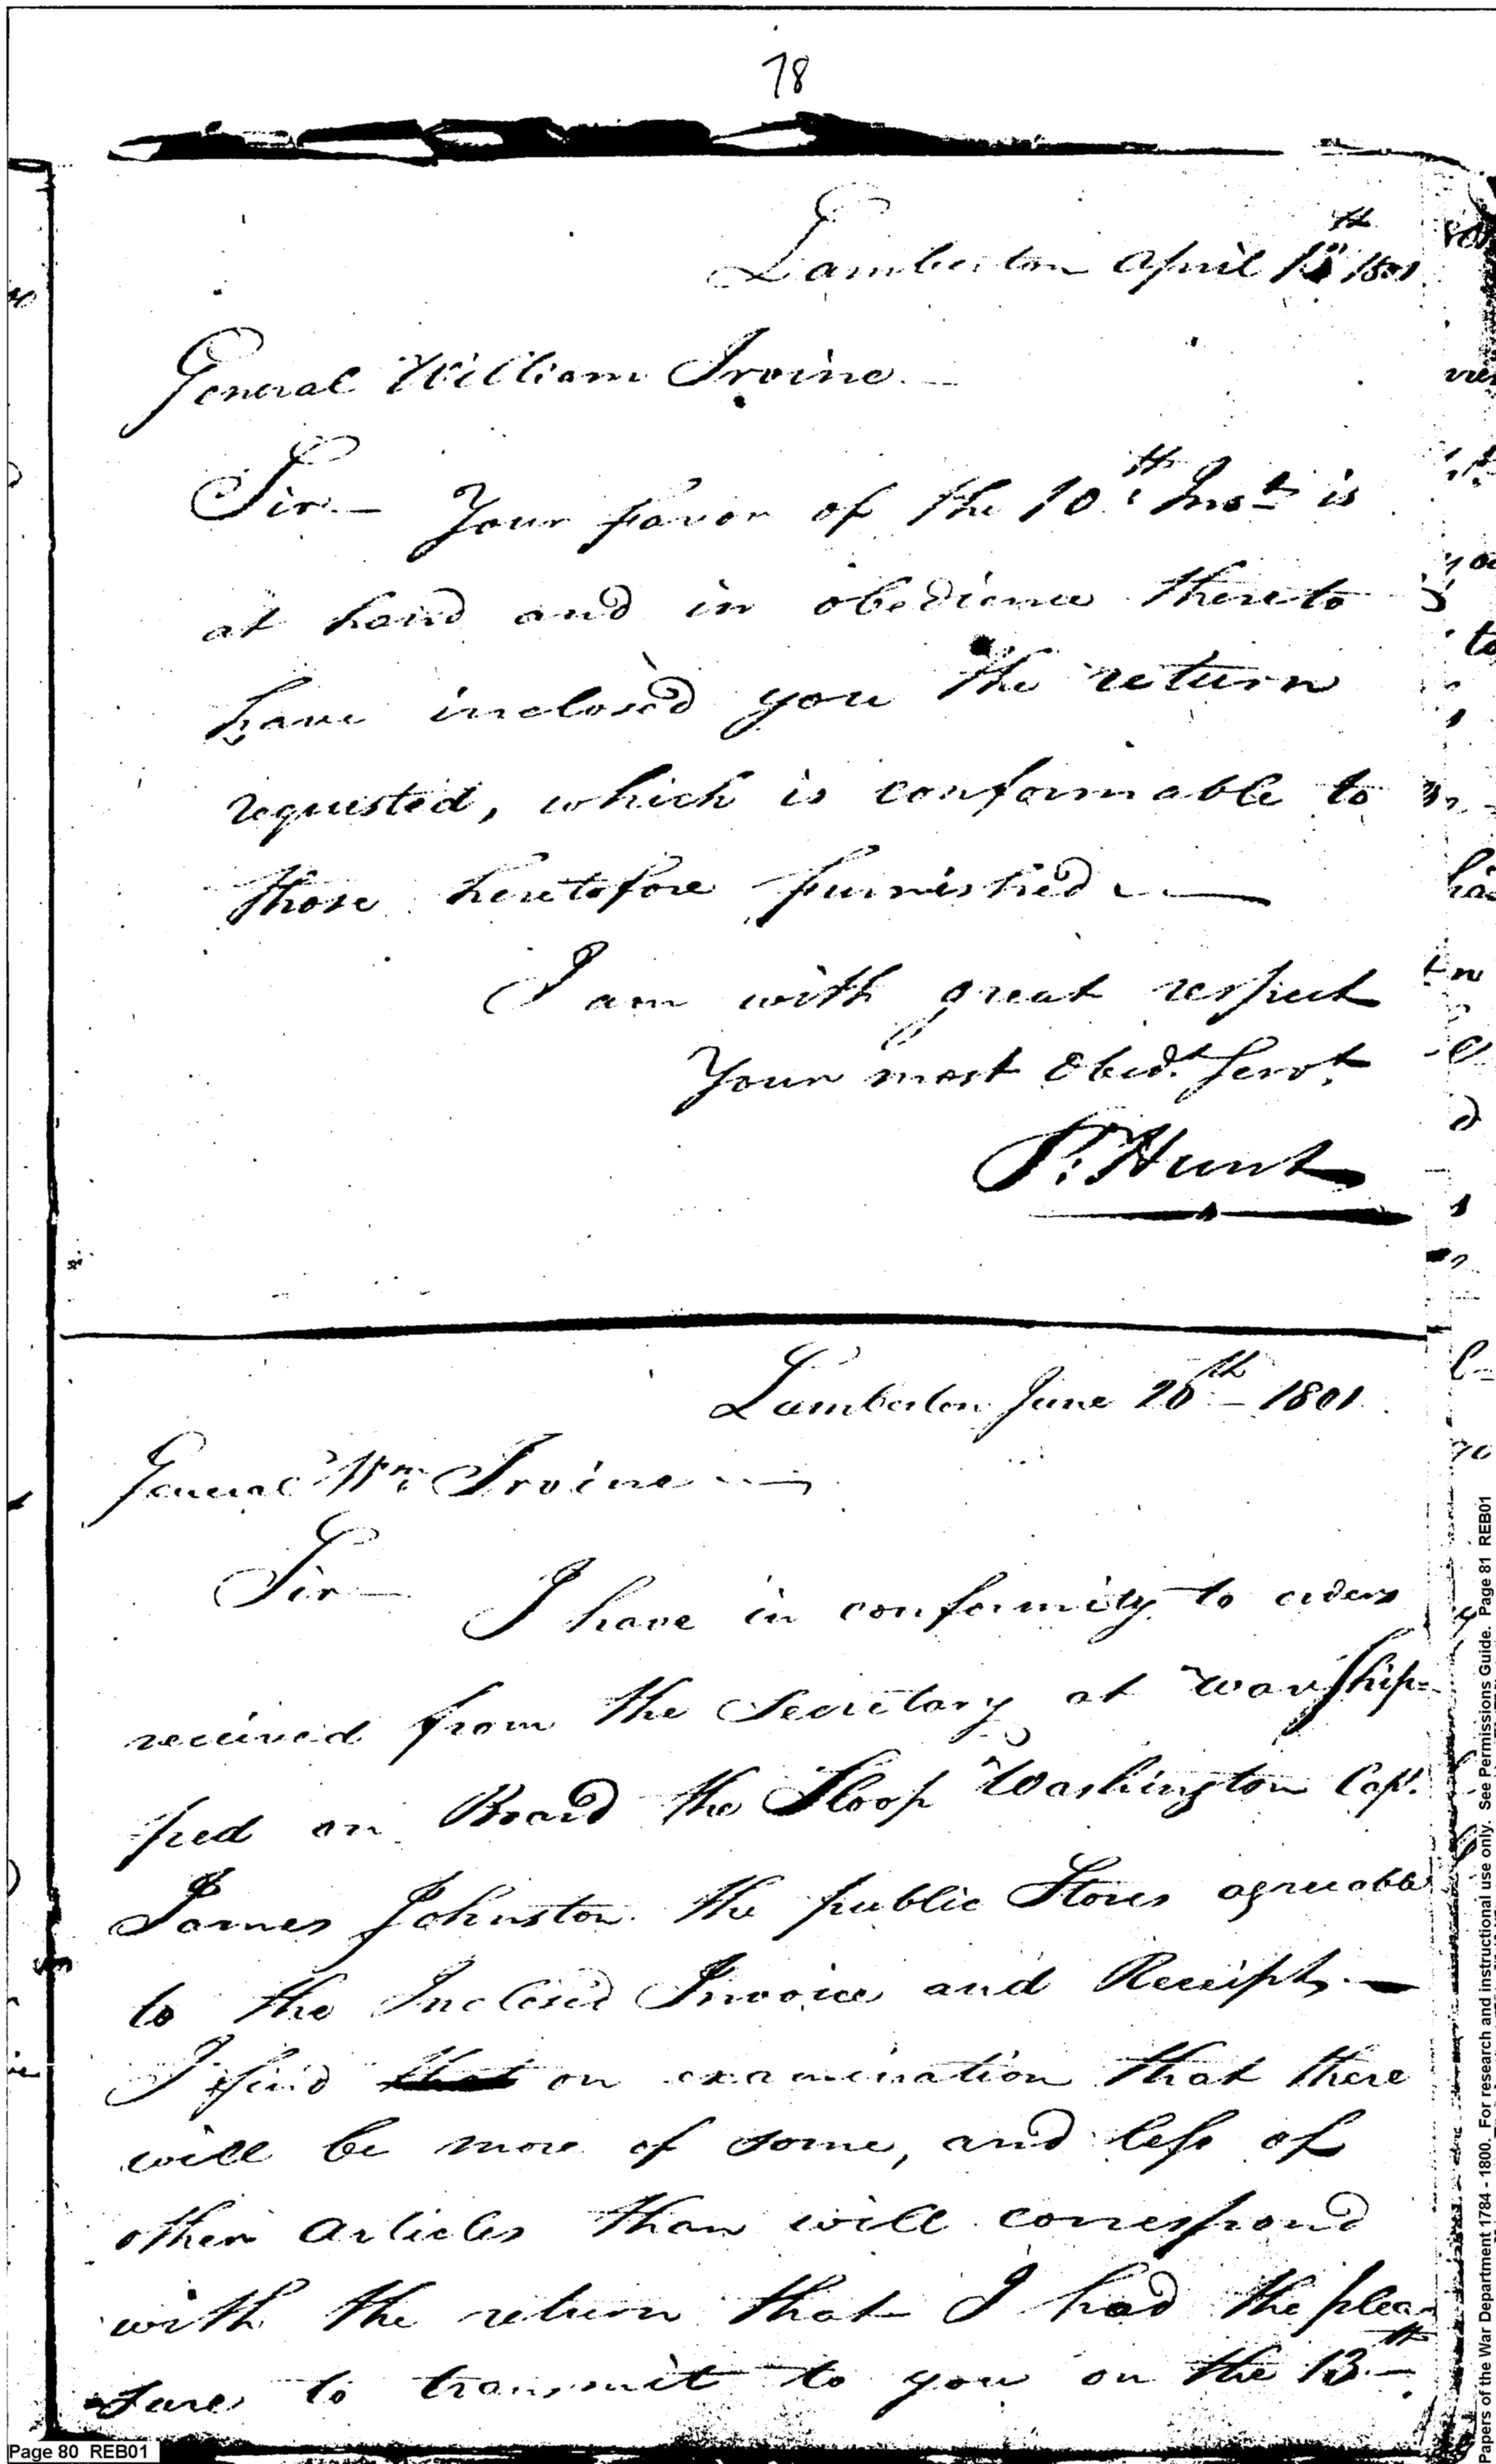 78
Lamberton April 15th 1801
General William Irvine
Sir Your favor of the 10th Inst is
at hand and in obedience thereto
have inclosed you the return
requested, which is conformable to
those heretofore furnished
I am with great respect
Your most Obedt Servt
P. Hunt
Lamberton June 20th 1801
General Wm Irvine
Sir I have in conformity to orders
received from the Secretary at war ship=
ped on Board the Sloop Washington Capt.
James Johnston the public Stores agreeable
to the Inclosed Invoice and Receipt,
I find that on examination that there
will be more of some, and less of
other Articles than will correspond
with the return that I had the plea=
sure to transmit to you on the 13th
Page 80 REB01
Papers of the War Department 1784 - 1800. For research and instructional use only. See Permissions Guide. Page 81 REB01